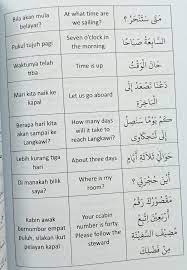 Bila akan mula belayar?
At what time are we sailing?
مَتَى سَنُبْحِرُ ؟
Pukul tujuh pagi
Seven o'clock in the morning
السَّابِعَةُ صَبَاحًا
Waktunya telah tiba
Time is up
حَانَ الْوَقْتُ
Mari kita naik ke kapal
Let us go aboard
دَعْنَا نَصْعَدُ إِلَى الْبَاخِرَةِ
Berapa hari kita akan sampai ke Langkawi?
How many days will it take to reach Langkawi?
كَمْ يَوْمًا سَنَصِلُ إِلَى
Lebih kurang tiga hari
About three days
حَوَالَيْ ثَلَاثَةِ أَيَّامٍ
Di manakah bilik saya?
Where is my room?
أَيْنَ حُجْرَتِي ؟
Kabin awak bernombor empat Puluh, silakan ikut
pelayan kapal
Your cabin number is forty. Please follow the steward
رَقْمُ
أَرْبَعِيْنَ
مُضِيْفَ السَّفِيْنَةِ
مِنْ فَضْلِكَ